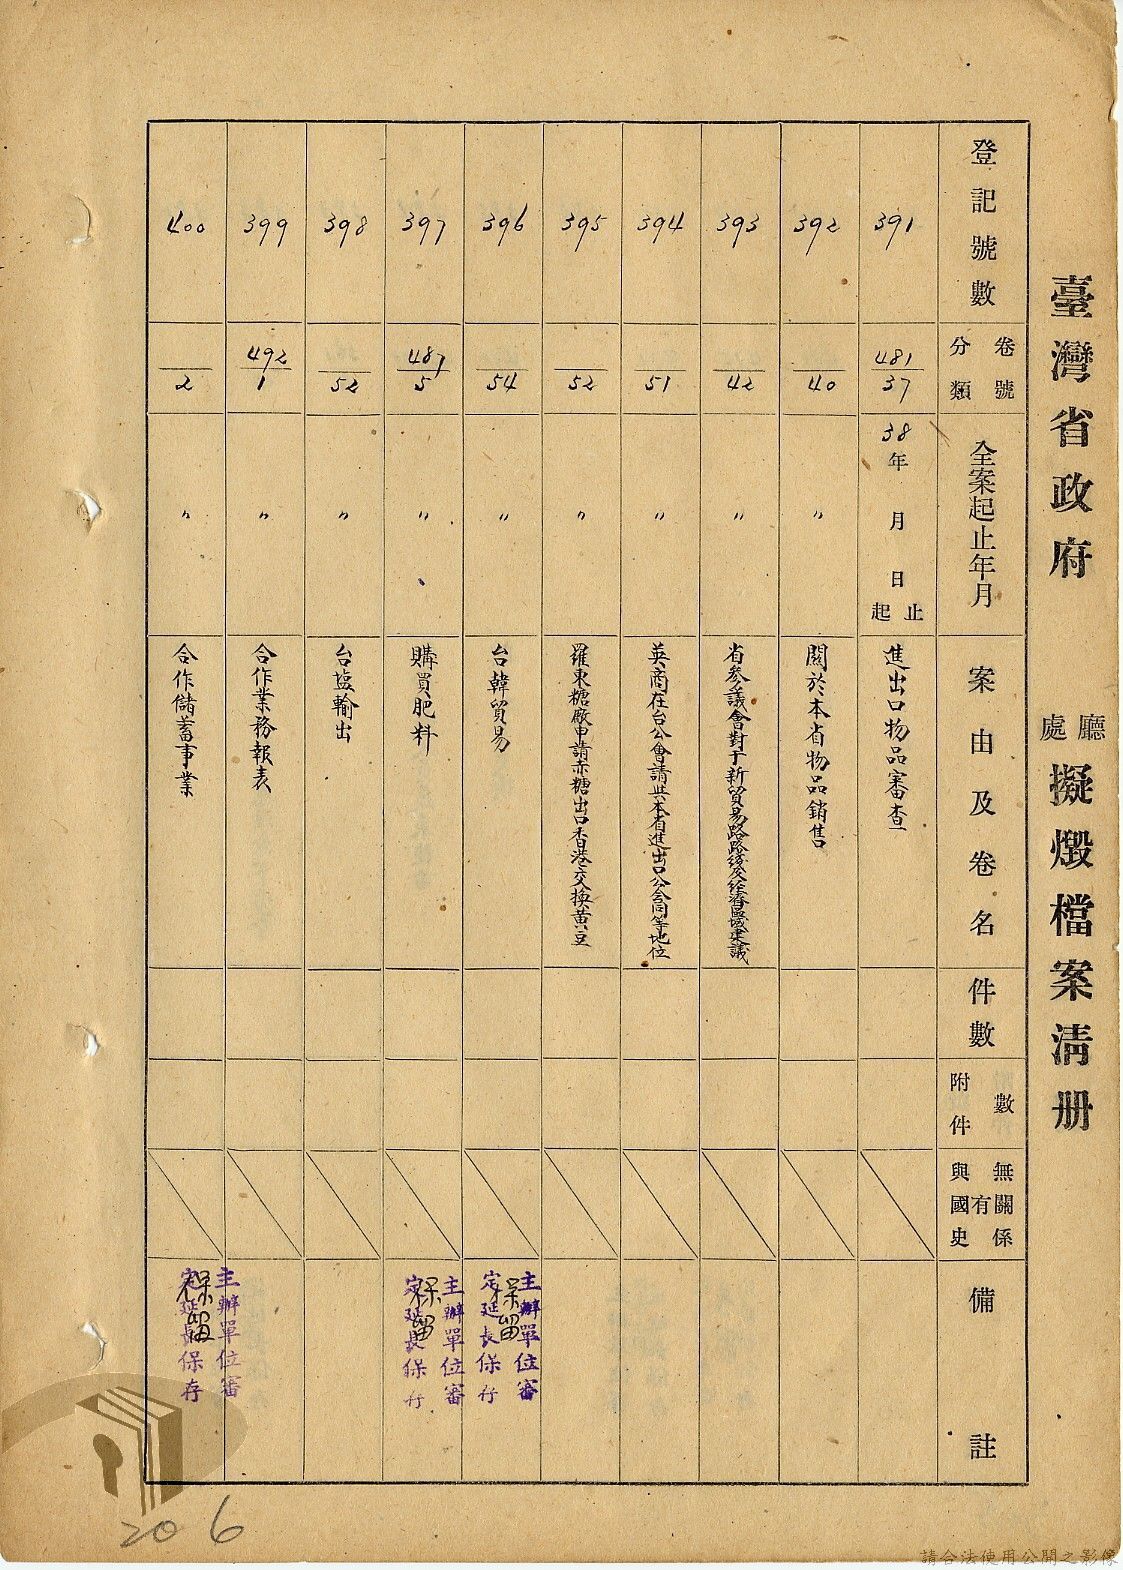 臺灣省政府 廳處 擬燬檔案清册
登記號數
卷號分類
全案起止年月
案由及卷名
件數
附件數
與國史有無關係
備註
391
481/37
38年 月 日起止
進出口物品審查
392
40
〃
關於本省物品銷售
393
42
〃
省參議會對于新貿易路線及經濟區域建議
394
51
〃
英商在台公會請與本省進出口公會同等地位
395
52
〃
羅東糖厰申請赤糖出口香港交換黄豆
396
54
〃
台韓貿易
主辦單位審定延長保存
保留
397
487/5
〃
購買肥料
主辦單位審定延長保存
保留
398
52
〃
台塩輸出
399
492/1
〃
合作業務報表
400
2
〃
合作儲蓄事業
主辦單位審定延長保存
保留
206
請合法使用公開之影像